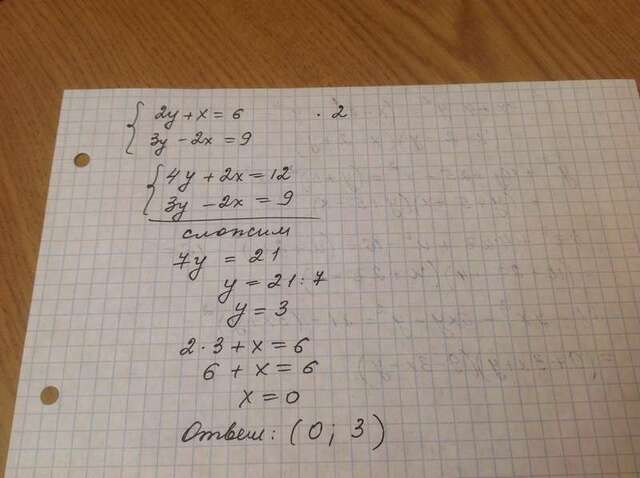 2y + x = 6 · 2
3y - 2x = 9
4y + 2x = 12
3y - 2x = 9
сложим
7y = 21
y = 21 : 7
y = 3
2 · 3 + x = 6
6 + x = 6
x = 0
Ответ: (0; 3)